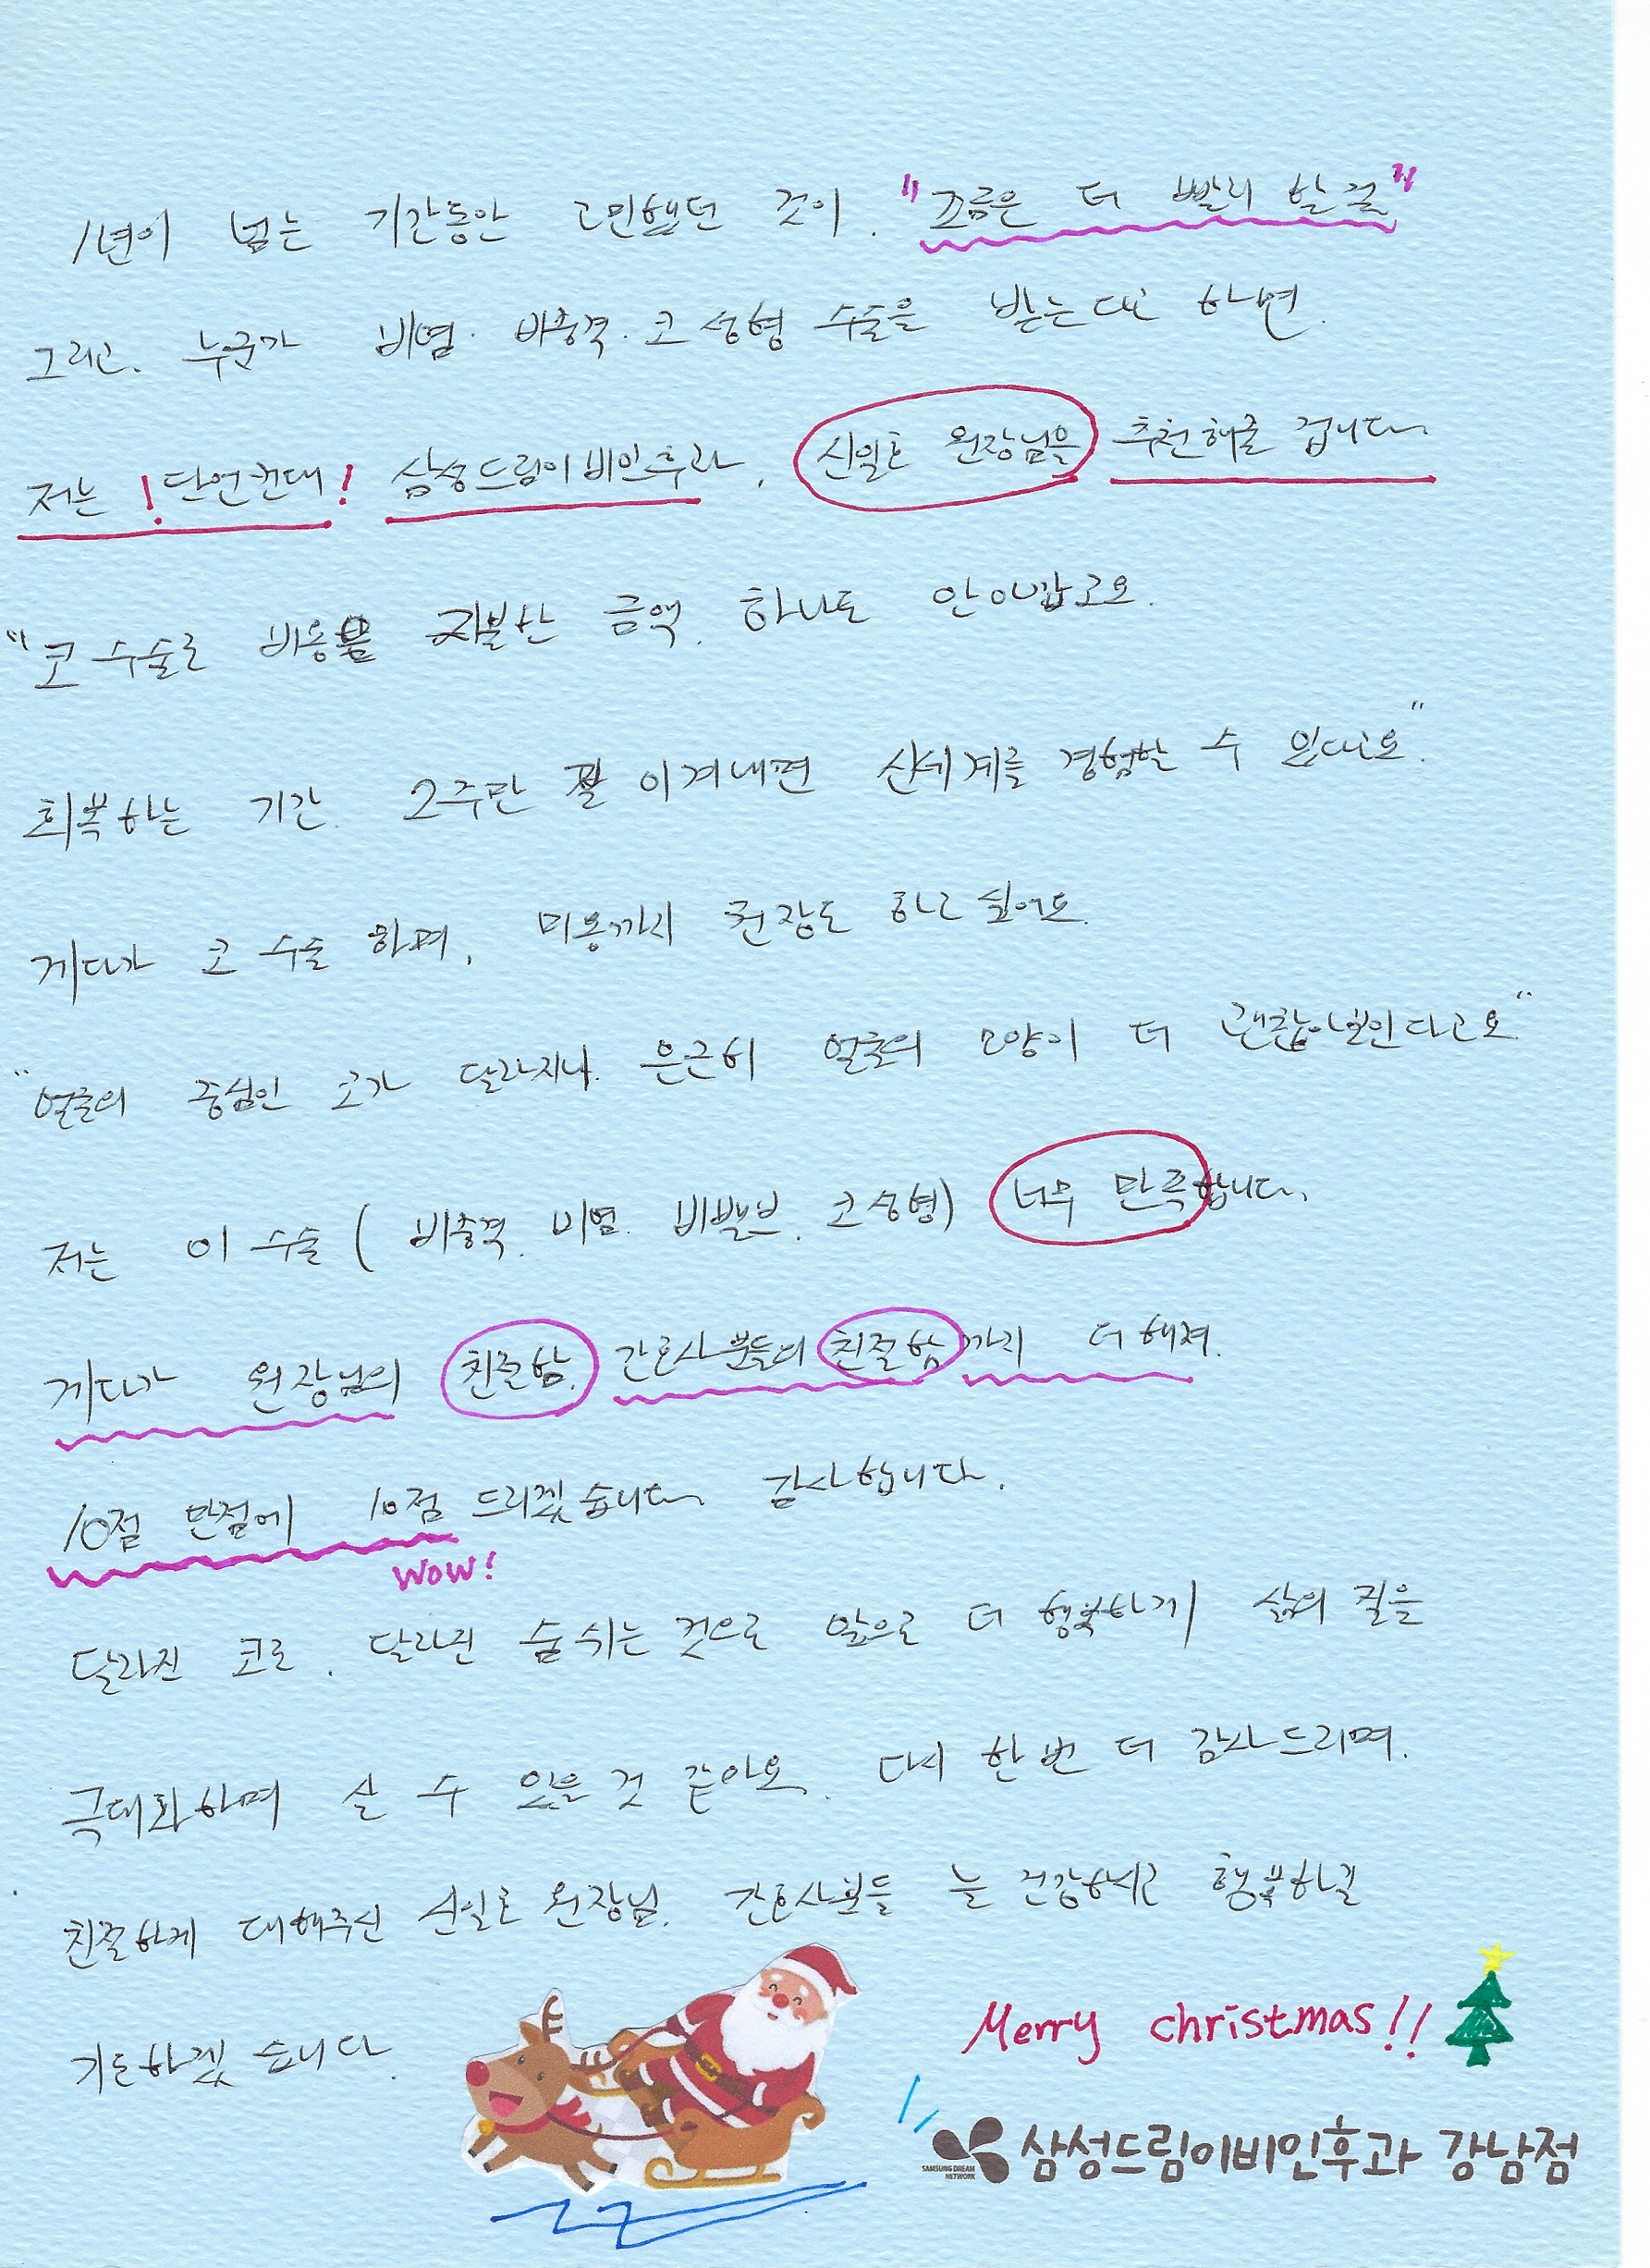 1년이 넘는 기간동안 고민했던 것이. "조금은 더 빨리 할 걸"
그리고, 누군가 비염. 비중격. 코 성형 수술을 받는다고 하면.
저는 ! 단언컨대 ! 삼성드림이비인후과, 신일호 원장님을 추천해줄 겁니다.
"코 수술로 비용을 지불한 금액. 하나도 안아깝고요.
회복하는 기간. 2주만 잘 이겨내면 신세계를 경험할 수 있다고요."
게다가 코 수술 하며, 미용까지 권장도 하고 싶어요.
"얼굴의 중심인 코가 달라지니. 은근히 얼굴의 모양이 더 괜찮아보인다고요"
저는 이 수술 ( 비중격. 비염. 비밸브. 코 성형) 너무 만족합니다.
게다가 원장님의 친절함. 간호사분들의 친절함까지 더해져.
10점 만점에 10점 드리겠습니다. 감사합니다.
WOW!
달라진 코로, 달라진 숨쉬는 것으로 앞으로 더 행복하게 삶의 질을
극대화하며 살 수 있을 것 같아요. 다시 한 번 더 감사드리며.
친절하게 대해주신 신일호 원장님. 간호사분들 늘 건강하시고 행복하길
기도하겠습니다.
Merry christmas!!
SAMSUNG DREAM
NETWORK
삼성드림이비인후과 강남점